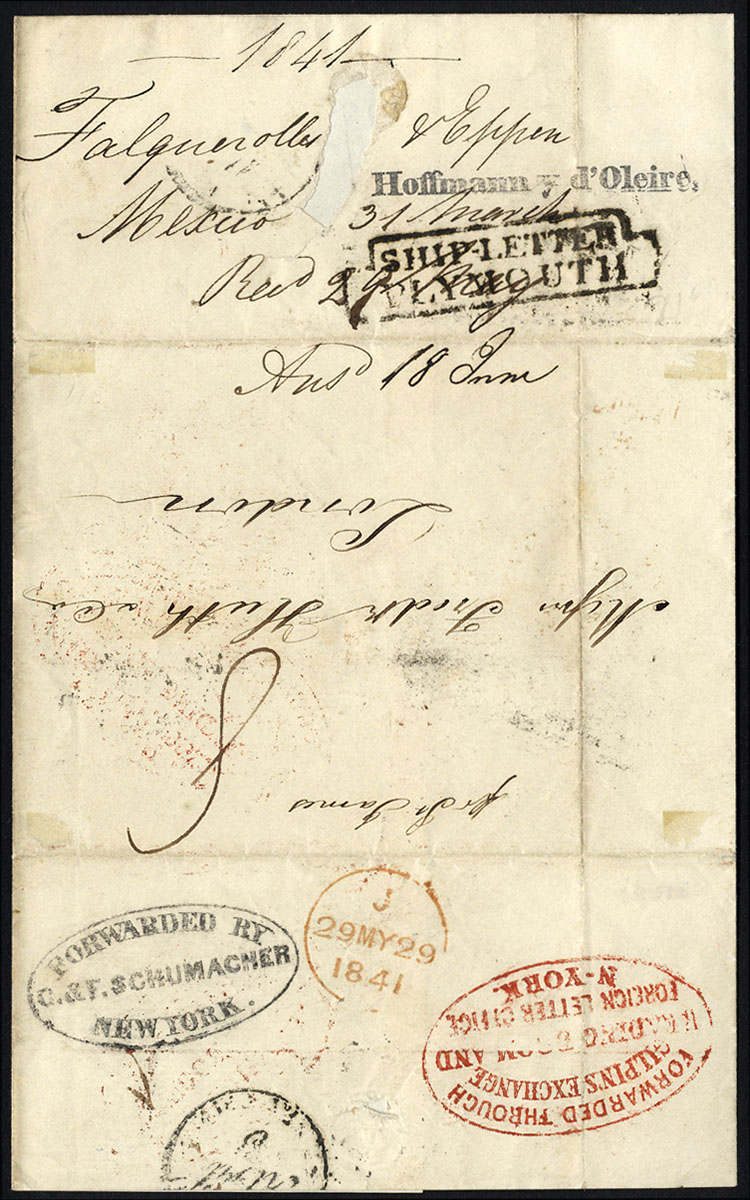 1841
Falquerolles & Eppen
Hoffmann y d'Oleire.
Mexico 31 March
SHIP-LETTER
PLYMOUTH
Recd 29 May
Ansd 18 June
London
Messrs Fredk Huth & Co
8
pr St James
J
29MY29
1841
FORWARDED BY
C. & F. SCHUMACHER
NEW YORK.
FORWARDED THROUGH
GILPIN'S EXCHANGE
READING ROOM AND
FOREIGN LETTER OFFICE
N-YORK.